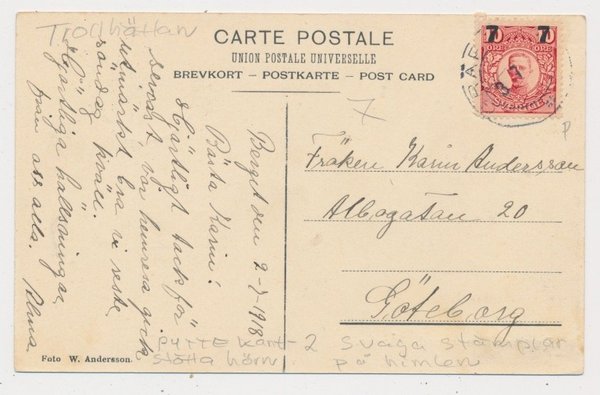 Trollhättan
CARTE POSTALE
UNION POSTALE UNIVERSELLE
BREVKORT - POSTKARTE - POST CARD
7 7
ÖRE ÖRE
SVERIGE
Berget den 2-7-1918
Bästa Karin!
Hjärtligt tack för
senast, vår hemresa gick
utmärkt bra vi reste
söndag kväll.
Hjärtliga hälsningar
från oss alla.
Fröken Karin Andersson
Albogatan 20
Göteborg
Foto W. Andersson.
PYTTE kant- 2 svaga stämplar
stötta hörn på himlen